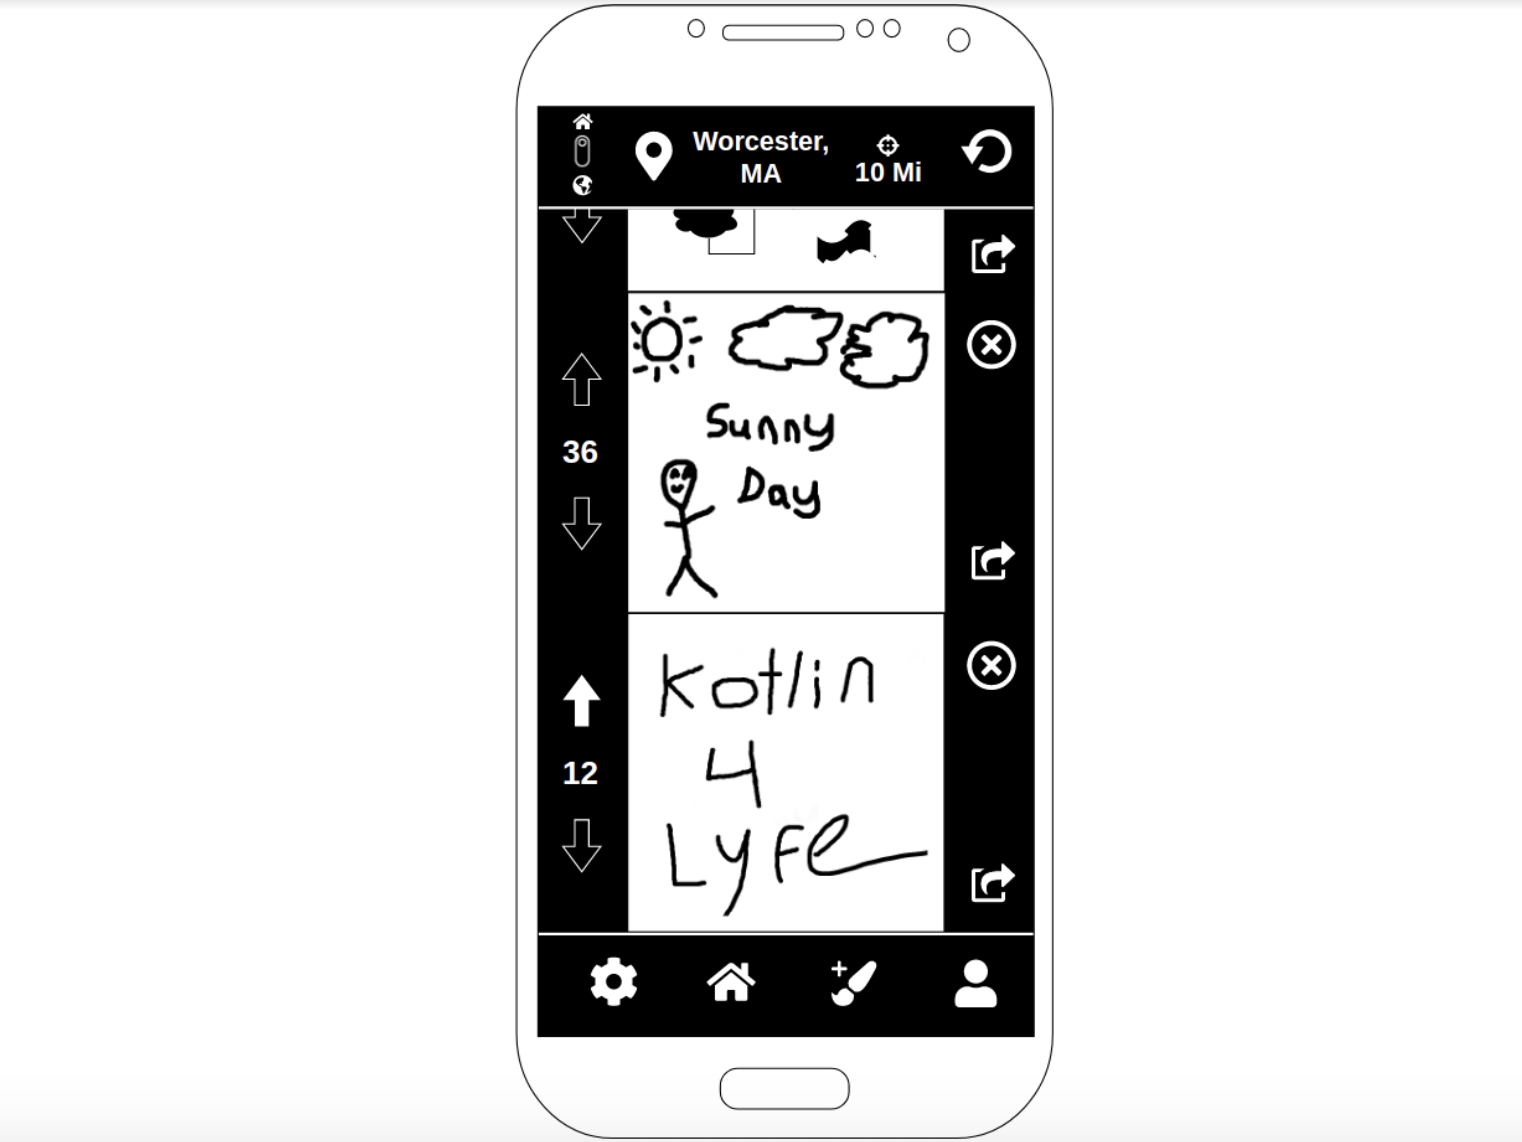 Worcester,
MA
10 Mi
36
Sunny
Day
12
Kotlin
4
Lyfe